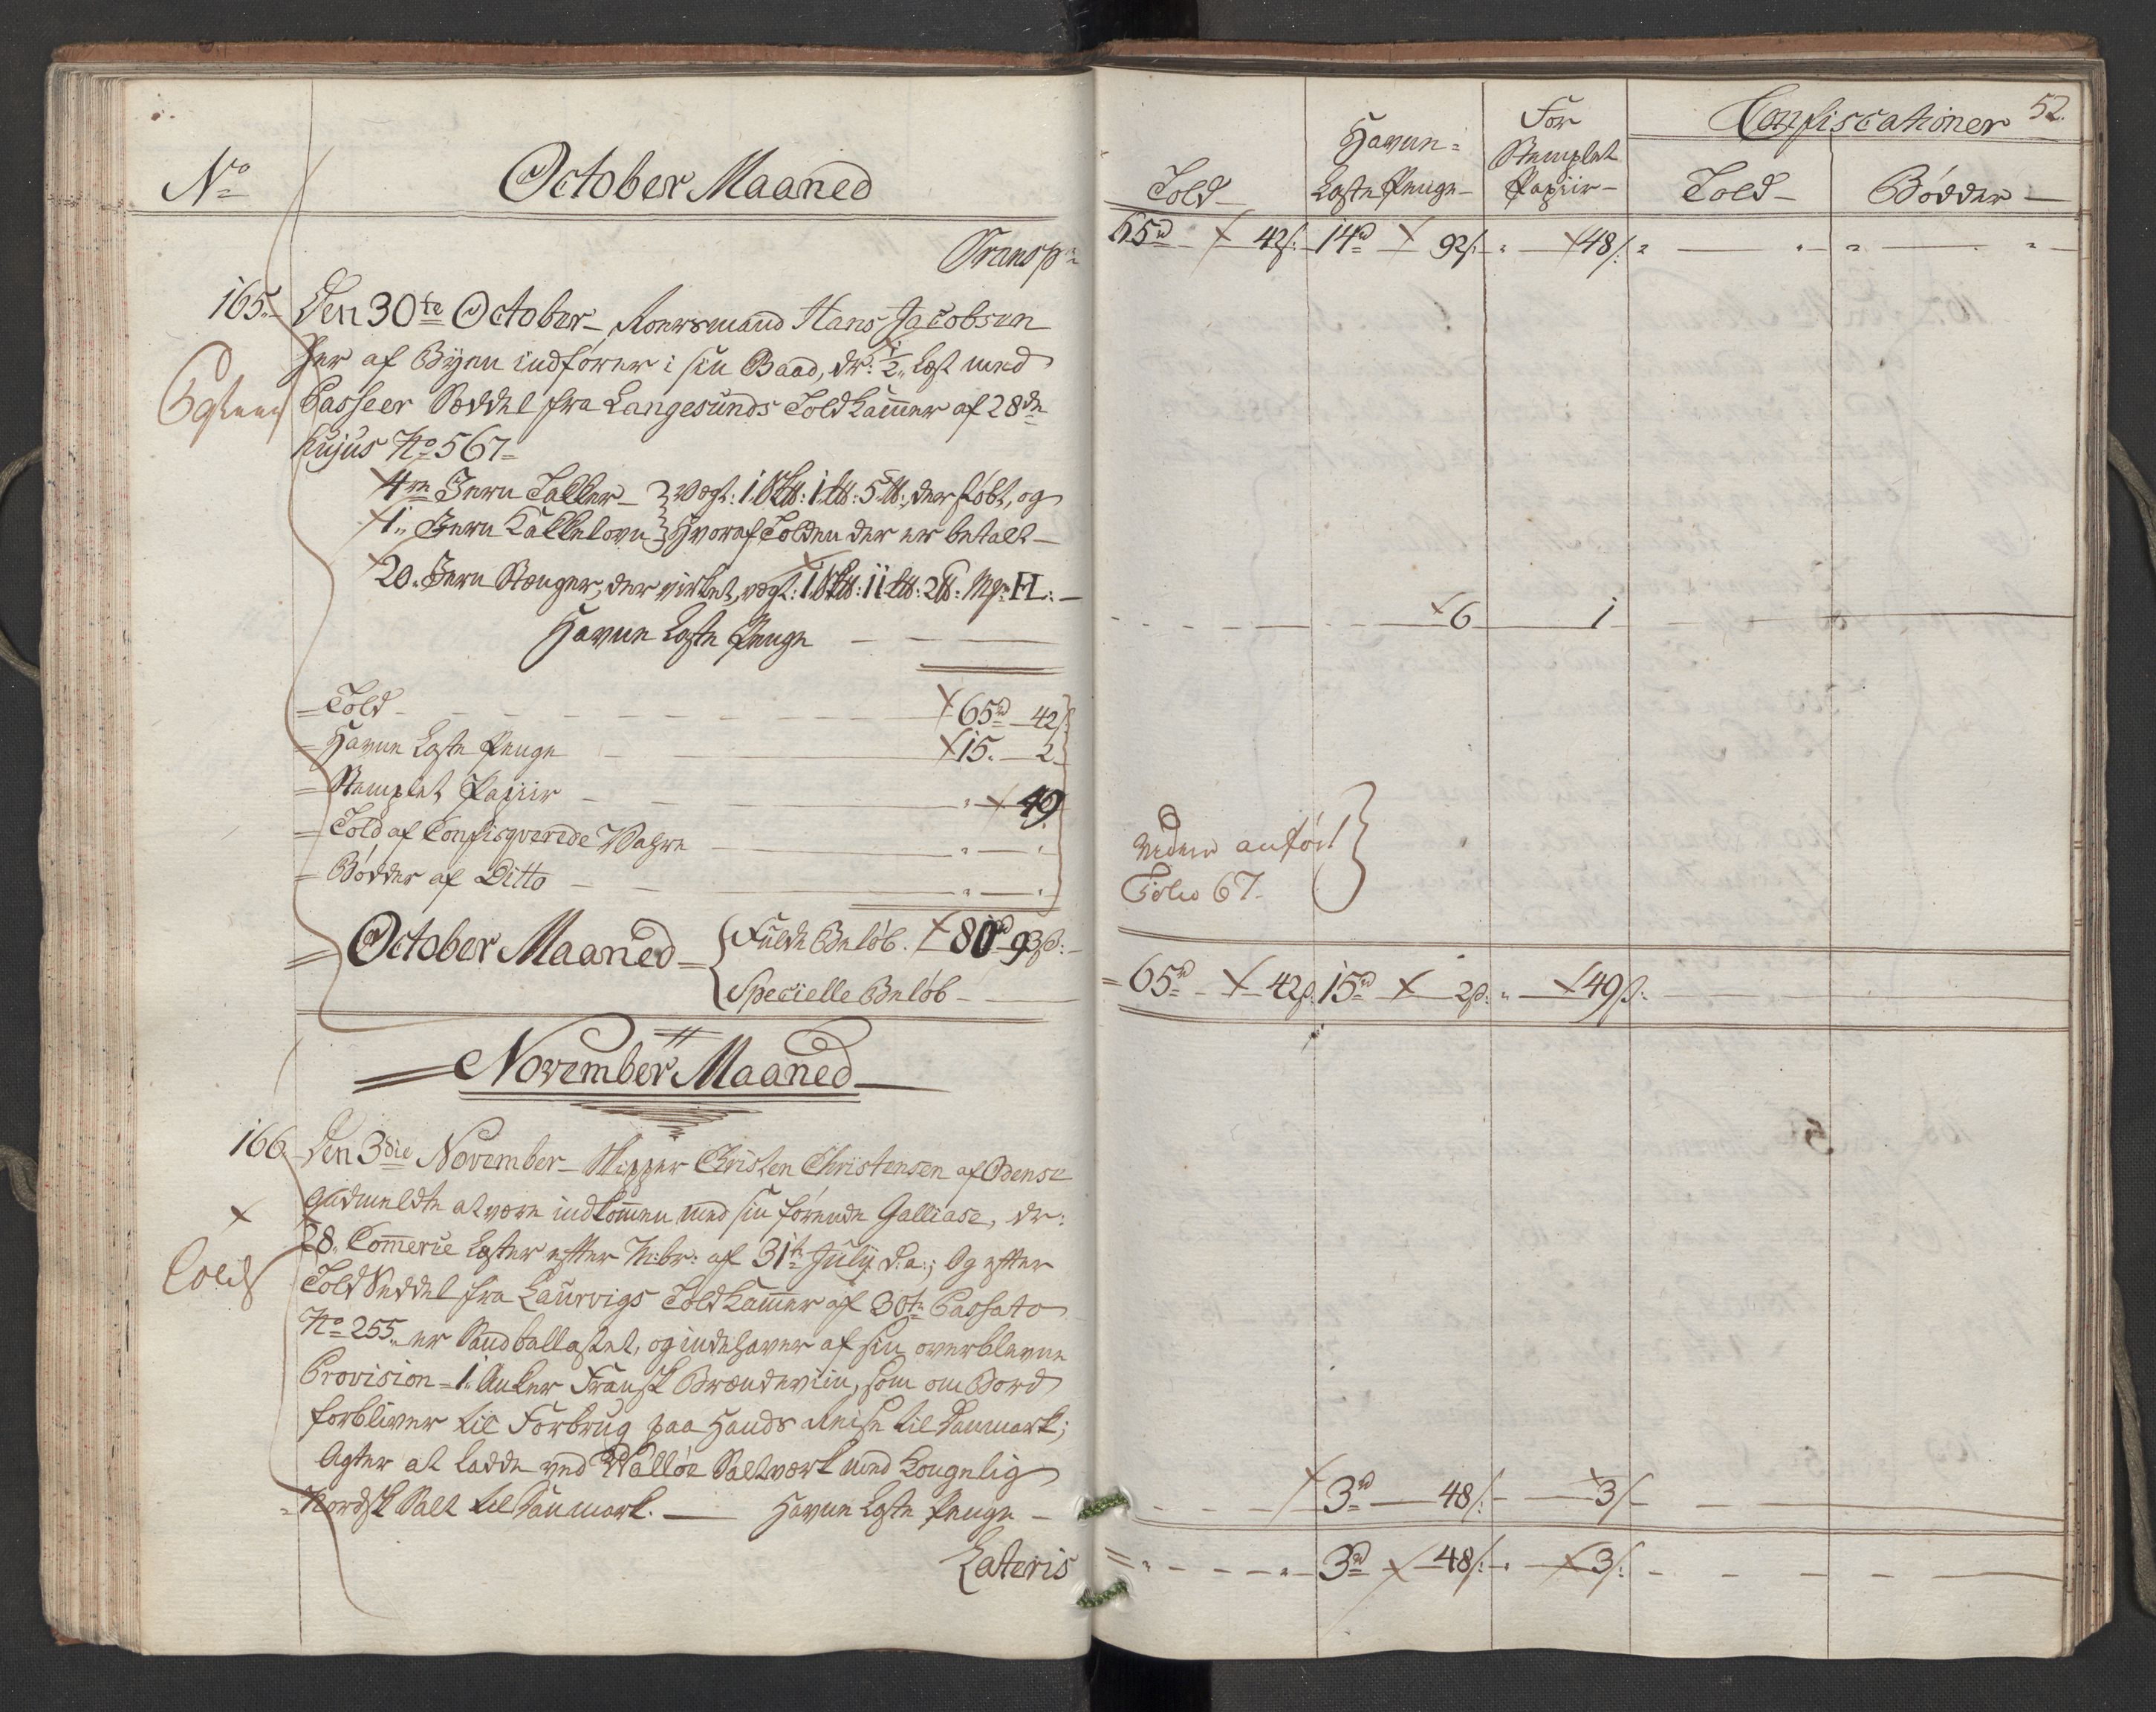 No
October Maaned
Transp:
165. Den 30te October Roersmand Hans Jacobsen
her af Byen indfører i sin Baad, dr: ½ Læst med
Passeer Seddel fra Langesunds Toldkammer af 28de
hujus No 567
4re Jern Taller } vegt: 1 Sk℔: 1 L℔: 5 ℔: der kiøbt, og
1. Jern Kakkelovn } hvoraf Tolden der er betalt
20. Jern Stænger, der virket, vegt: 1 Sk℔: 11 L℔: 2 ℔: Mk: H:
Havne Læste Penge
Told 65rd 42s
Havne Læste Penge 15. 2
Stemplet Papiir 49
Told af Confisqverede Vahre
Bødder af Ditto
October Maaned { Fulde Beløb. 80rd 93s:
Specielle Beløb
November Maaned
166. Den 3die November Skipper Christen Christensen af Odense
andmeldte at være indkommen med sin førende Galliase, dr:
28. Commerce Læster efter M:br: af 31te July d:a:; og efter
Told Seddel fra Laurvigs Toldkammer af 30te Passato
No 255. er Sandballastet, og indehaver af sin overblevne
Provision 1. Anker Fransk Brændeviin, som om Bord
forbliver til Forbrug paa Hands Reise til Danmark;
Agter at ladde ved Walløe Saltværk med Kongelig
Nordsk Salt til Danmark. Havne Læste Penge
Lateris
52.
Told
Havne
Læste Penge
For
Stemplet
Papiir
Confiscationer
Told
Bødder
65rd 42s: 14rd 92s 48s:
6 1
videre anført
Folio 67.
65rd 42s: 15rd 2s: 49s:
3rd 48s: 3s
3rd 48s: 3s: